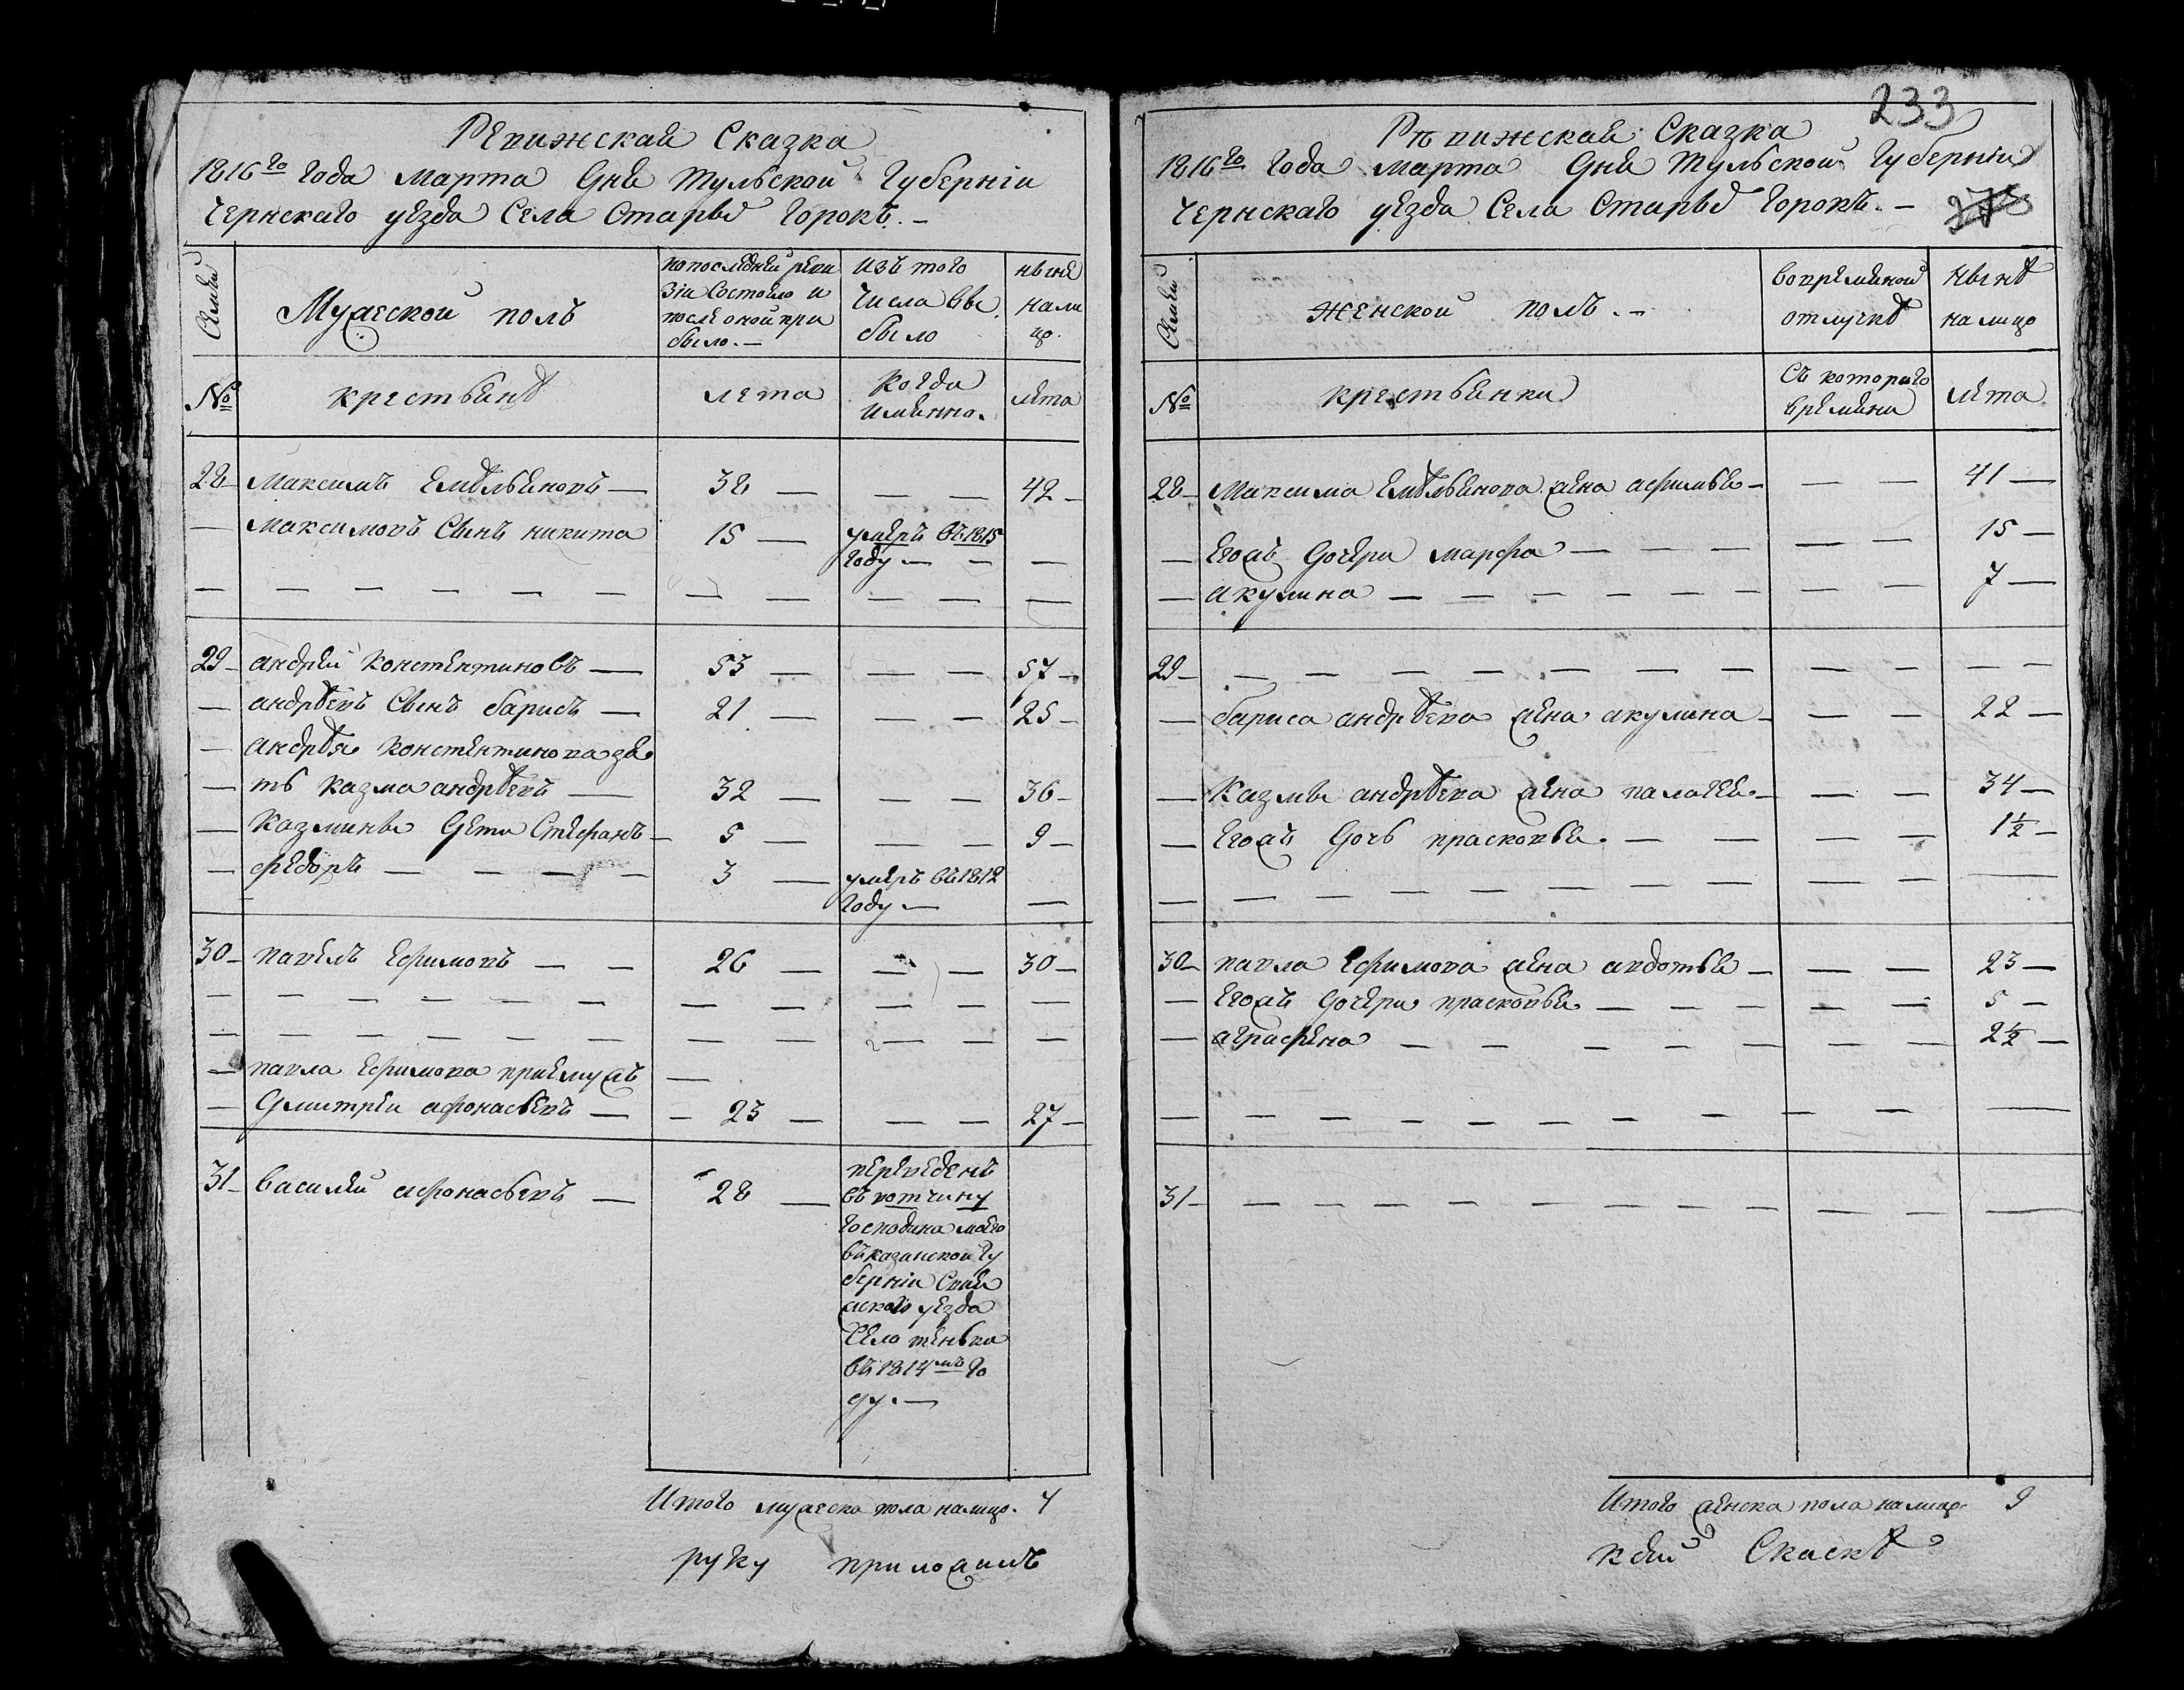 Ревижская Сказка
1816го года марта дня Тульской Губерніи
Чернскаго уезда Села Старыхъ Горокъ. —
Семьи
Мужеской полъ
по последней реви
зіи Состояло и
после оной при
было. —
изъ того
числа вы
было
ныне
нали
цо.
№
крестьяне
лета
Когда
имянно.
лета
28 — Максимъ Емѣльяновъ — 38 — — — 42 —
— Максимовъ Сынъ никита 15 — умеръ въ 1815
году — — —
29 — андрей Констентиновъ — 53 — — — 57 —
— андрѣевъ Сынъ барисъ — 21 — — — 25 —
— андрѣя Констентинова зя
— ть Казма андрѣевъ — 32 — — — 36 —
— Казмины дети Степанъ — 5 — — — 9 —
— федоръ — — — — 3 — умеръ въ 1812
году — —
30 — павелъ Ефимовъ — — 26 — — — 30 —
— павла Ефимова приемужъ —
— дмитреи афонасьевъ — — 23 — — — 27 —
31 — василей афонасьевъ — 28 — переведенъ
въ вотчину
господина моего
въ казанской гу
берніи Свия
жскаго уезда
Село теньки
въ 1814мъ го
ду. —
Итого мужеска пола налицо. 7
руку приложилъ
233
Рѣвижская Сказка
1816го года марта дня Тульской Губерніи
Чернскаго уезда Села Старыхъ Горокъ. —
Семьи
женской полъ. —
во времянной
отлучкѣ
нынѣ
налицо
№
крестьянки
Съ котораго
времяни
лета
28 — Максима Емѣльянова жена афимья — — — 41 —
— Егожъ дочери марфа — — — — — 15 —
— акулина — — — — — — — — — 7 —
29 — — — — — — — — — — — —
— бариса андрѣева жена акулина — — — 22 —
— Казмы андрѣева жена палагея — — — 34 —
— Егожъ дочь прасковья. — — — — 1 1/2 —
30 — павла Ефимова жена авдотья — — — 23 —
— Егожъ дочери прасковья — — — — — 5 —
— аграфена — — — — — — — — 2 1/2 —
31 — — — — — — — — — — — —
Итого женска пола налицо 9
к сей Скаскѣ